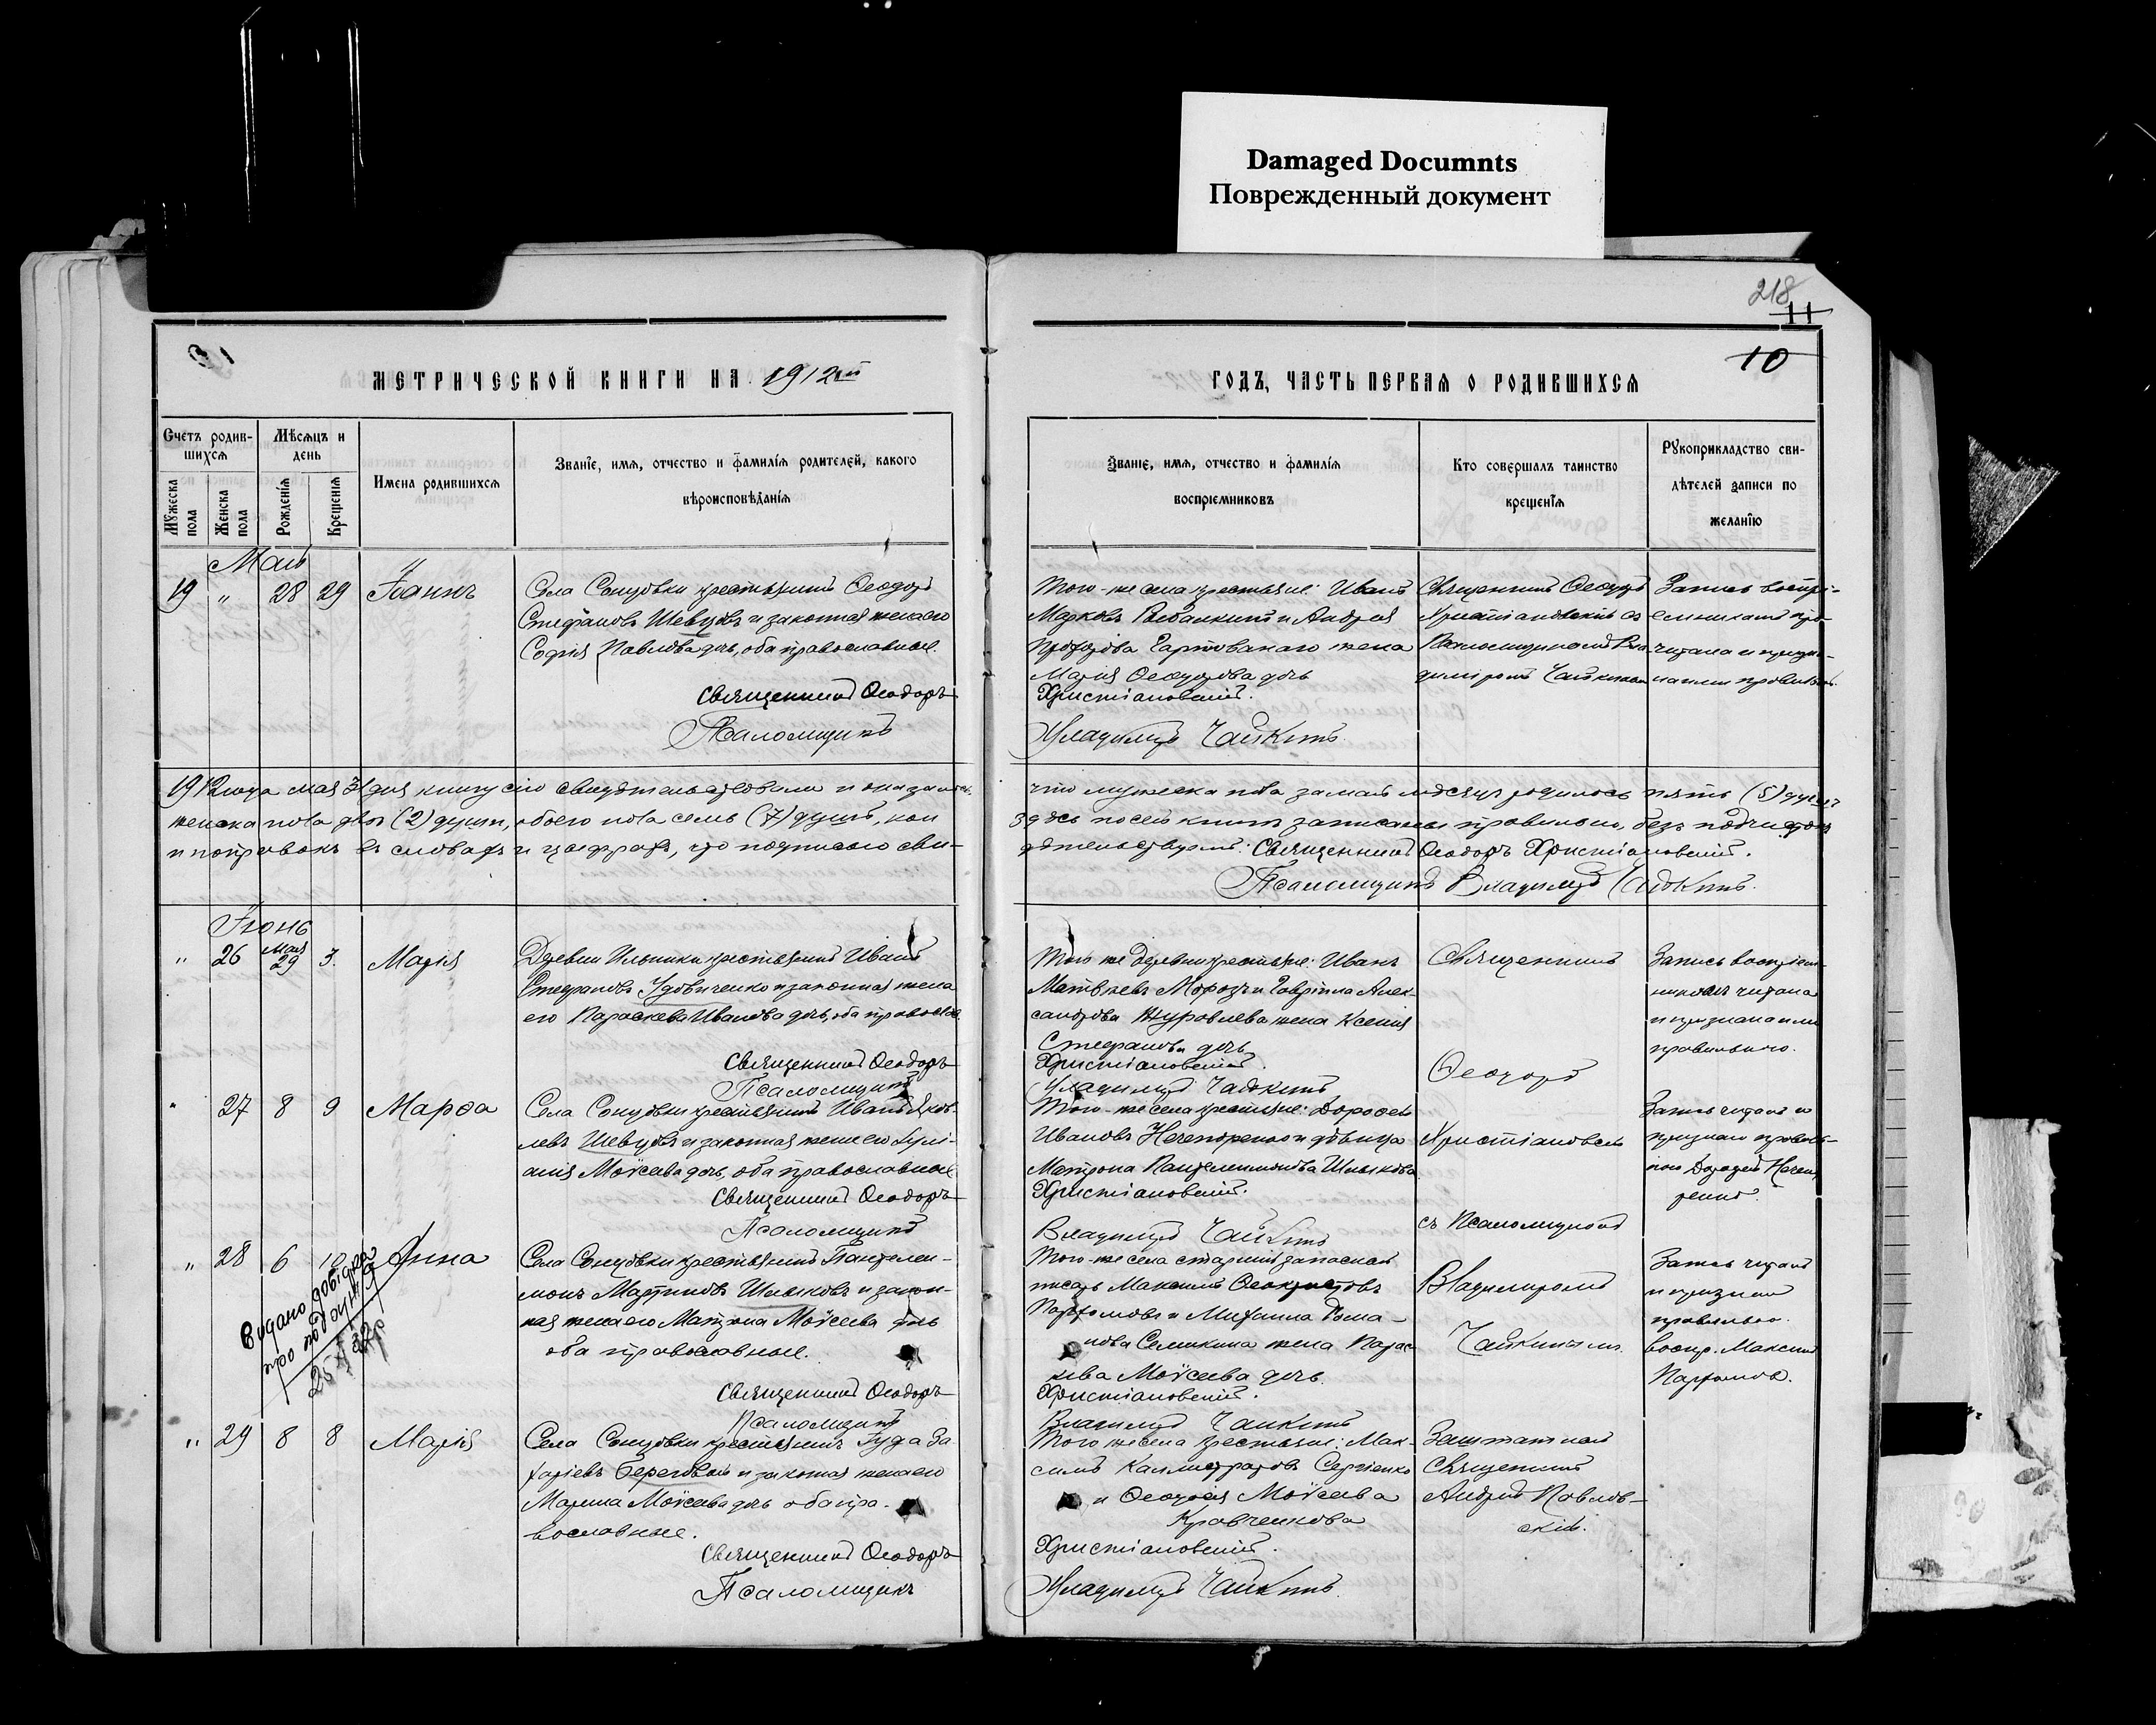 Damaged Documnts
Поврежденный документ
218
11
10
МЕТРИЧЕСКОЙ КНИГИ НА 1912ый
ГОДЪ, ЧАСТЬ ПЕРВАЯ О РОДИВШИХСЯ
Счетъ родив-
шихся
Мѣсяцъ и
день
Мужеска
пола
Женска
пола
Рожденія
Крещенія
Имена родившихся
Званіе, имя, отчество и фамилія родителей, какого
вѣроисповѣданія
Званіе, имя, отчество и фамилія
воспріемниковъ
Кто совершалъ таинство
крещенія
Рукоприкладство сви-
дѣтелей записи по
желанію
Май
19 " 28 29 Іоаннъ
Села Сонцовки крестьянинъ Ѳеодоръ
Стефановъ Шевцовъ и законная жена его
Софія Павлова дочь, оба православные.
Священникъ Ѳеодоръ
Псаломщикъ
Того-же села крестьяне: Иванъ
Марковъ и Андрея
жена
Марія Ѳеодорова дочь
Христіановскій.
Владимиръ Чайкинъ.
Священникъ Ѳеодоръ
Христіановскій съ
Псаломщикомъ Вла-
диміромъ Чайкинымъ
Запись воспрі-
емниками про-
читана и приз-
нана правильной.
1912 года мая 31 дня книгу сію свидѣтельствовали и оказалось,
что мужеска пола за май мѣсяцъ родилось пять (5) душъ
женска пола двѣ (2) души, обоего пола семь (7) душъ, кои
здѣсь по сей книгѣ записаны правильно, безъ подчистокъ
и поправокъ въ словахъ и цифрахъ, что подписью сви-
дѣтельствуемъ: Священникъ Ѳеодоръ Христіановскій.
Псаломщикъ Владимиръ Чайкинъ.
Іюнь
" 26 Мая 29 3. Марія
Деревни Ильинки крестьянинъ Иванъ
Стефановъ Удовиченко и законная жена
его Параскева Иванова дочь, оба правосл.
Священникъ Ѳеодоръ
Псаломщикъ
Того же деревни крестьяне: Иванъ
Матвѣевъ Морозъ и Гавріила Алек-
сандрова Журавлева жена Ксенія
Стефанова дочь
Христіановскій.
Владимиръ Чайкинъ
Священникъ
Ѳеодоръ
Христіановскій
съ Псаломщикомъ
Владимиромъ
Чайкинымъ.
Запись воспріем-
никами читана
и признана ими
правильно.
" 27 8 9 Марѳа
Села Сонцовки крестьянинъ Иванъ Яков-
левъ Шевцовъ и законная жена его Іулі-
анія Моѵсеева дочь, оба православные
Священникъ Ѳеодоръ
Псаломщикъ
Того-же села крестьяне: Дороѳей
Ивановъ Нечепоренко и дѣвица
Матрона Пантелеимонова Шлыкова
Христіановскій.
Владимиръ Чайкинъ
Запись читалъ и
призналъ правиль-
ной Дорофей Нечеп
ренко.
" 28 6 10 Анна
Села Сонцовки крестьянинъ Пантелеи-
монъ Мартиновъ Шлыковъ и закон-
ная жена его Матрона Моѵсеева дочь
оба православные.
Священникъ Ѳеодоръ
Псаломщикъ
Видано довідка
про
Того же села старшій запасной
писарь Максимъ Ѳеоктистовъ
Парфомовъ и Михаила Рома-
нова Селикина жена Парас-
кева Моѵсеева дочь.
Христіановскій.
Владимиръ Чайкинъ
Запись читалъ
и призналъ
правильно.
воспр. Максимъ
Парфомов.
" 29 8 8 Марія
Села Сонцовки крестьянинъ Іуда За-
харіевъ Береговой и законная жена его
Марина Моѵсеева дочь оба пра-
вославные.
Священникъ Ѳеодоръ
Псаломщикъ
Того же села крестьяне: Мак-
симъ Каллистратовъ Сергіенко
и Ѳеодосія Моѵсеева
Кравченкова
Христіановскій.
Владимиръ Чайкинъ.
Заштатный
Священникъ
Андрей Павлов-
скій.